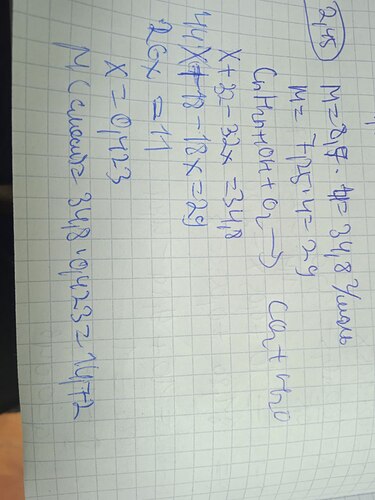 2,48
M = 8,7 · 4 = 34,8 г/моль
M = 7,25 · 4 = 29
CnH2n+1OH + O2 → CO2 + H2O
X + 32 - 32x = 34,8
44X + 18 - 18x = 29
26x = 11
X = 0,423
M смеси = 34,8 · 0,423 = 14,72